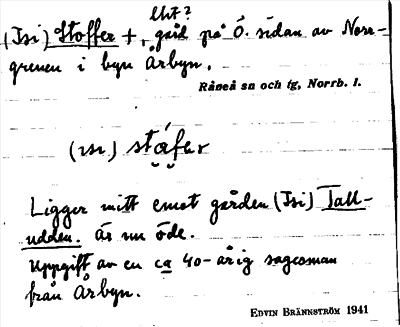 lht?
(Isi) Stoffer +, gård på Ö. sidan av Norr-
grenen i byn Årbyn.
Råneå sn och tg, Norrb. l.
(ısı) stáfer
Ligger mitt emot gården (Isi) Tall-
udden. Är nu öde.
Uppgift av en ca 40-årig sagesman
från Årbyn.
EDVIN BRÄNNSTRÖM 1941